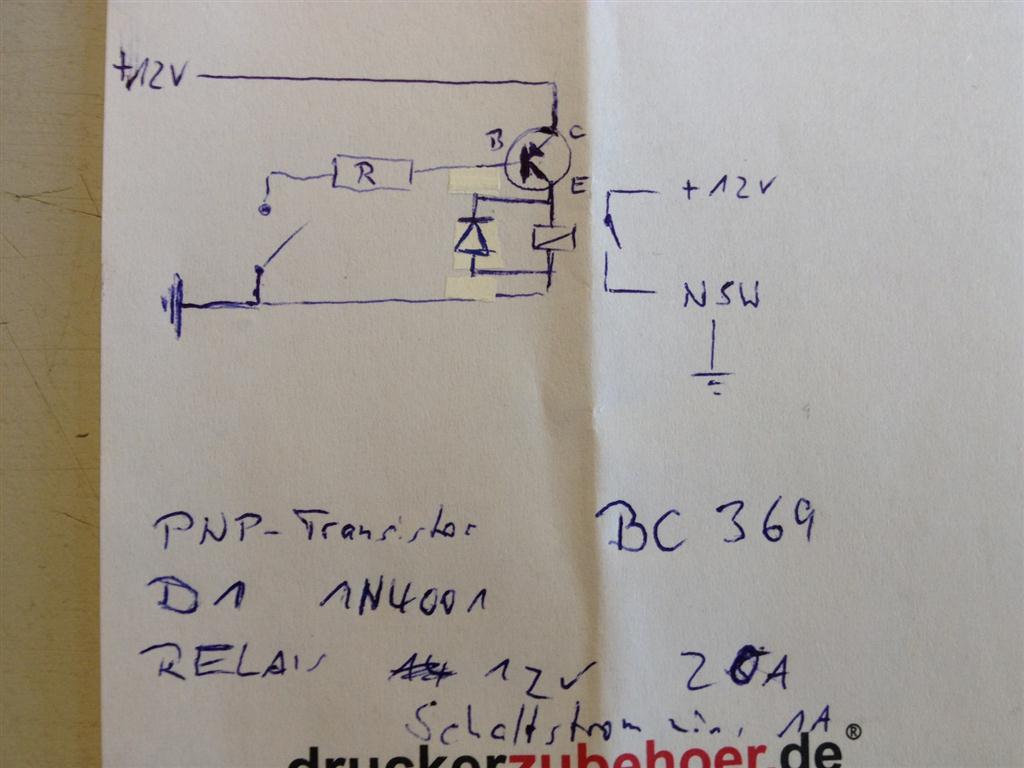 +12V
B C
R
E
+12V
NSW
PNP-Transistor BC 369
D1 1N4001
RELAIS 12V 20A
Schaltstrom min. 1A
druckerzubehoer.de®